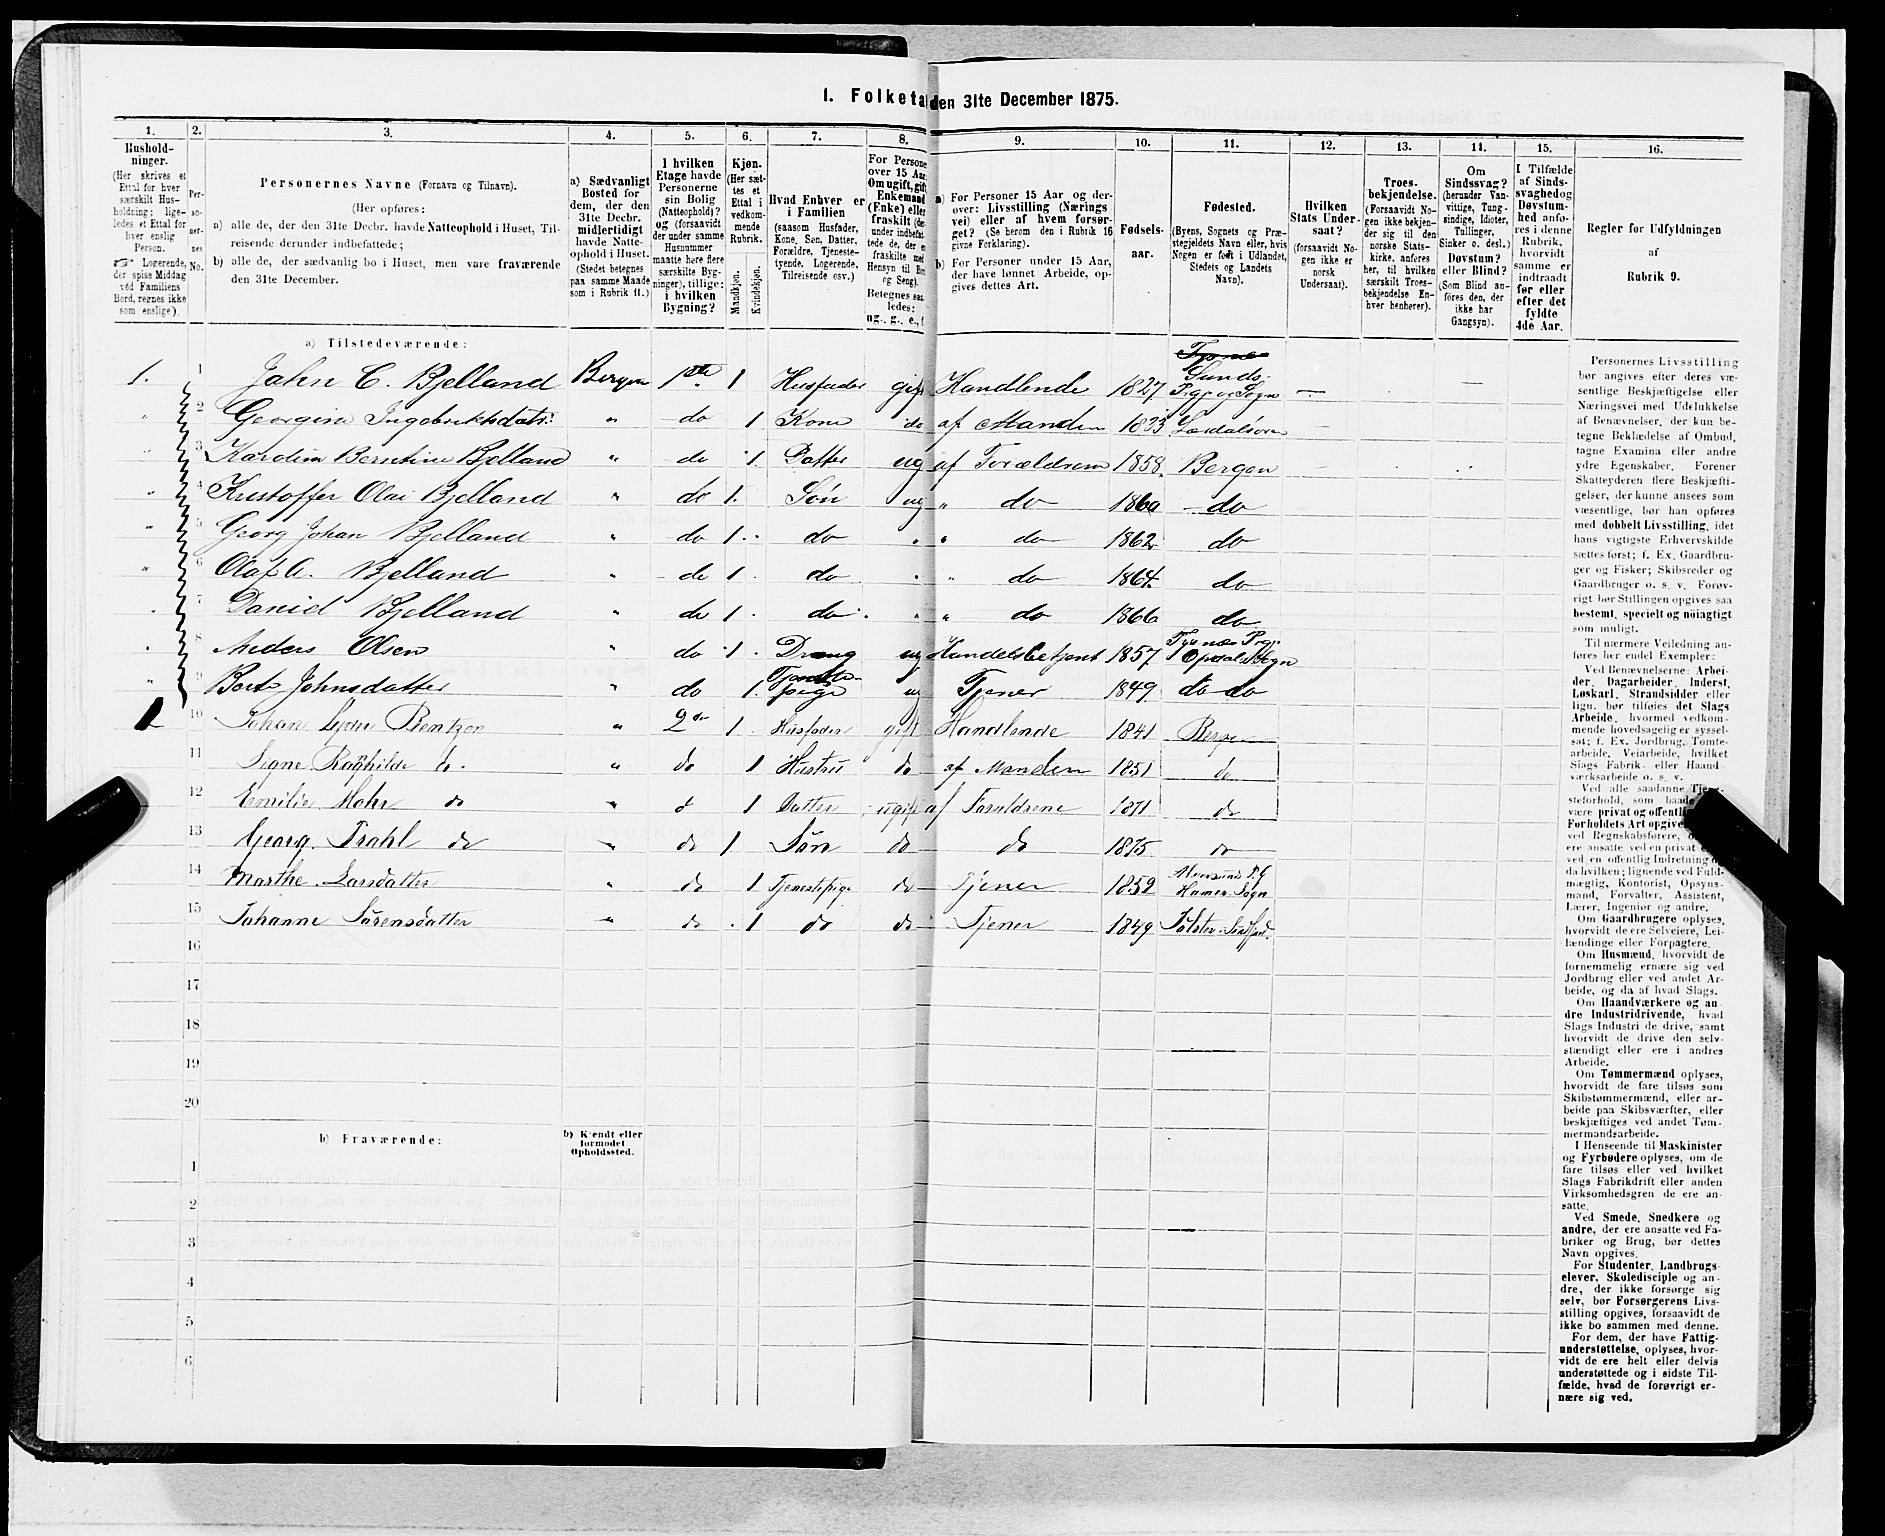 1. Folketa den 31te December 1875.
1. 2. 3. 4. 5. 6. 7. 8. 9. 10. 11. 12. 13. 14. 15. 16.
Husholdninger.
(Her skrives et
Ettal for hver
særskilt Husholdning;
ligeledes et Ettal for
hver enslig
Person.
☞ Logerende,
der spise Middag
ved Familiens
Bord, regnes ikke
som enslige).
Personernes No.
Personernes Navne (Fornavn og Tilnavn).
(Her opføres:
a) alle de, der den 31te Decbr. havde Natteophold i Huset, Tilreisende
derunder indbefattede;
b) alle de, der sædvanlig bo i Huset, men vare fraværende
den 31te December.
a) Sædvanligt
Bosted for
dem, der den
31te Decbr.
midlertidigt
havde Natteophold
i Huset.
(Stedet betegnes
paa samme Maade
som i Rubrik 11.)
I hvilken
Etage havde
Personerne
sin Bolig
(Natteophold)?
og (forsaavidt
der under samme
Husnummer
maatte høre flere
særskilte Bygninger),
tillige:
i hvilken
Bygning?
Kjøn.
(Her sættes
et
Ettal i
vedkommende
Rubrik.
Mandkjøn.
Kvindekjøn.
Hvad Enhver er
i Familien
(saasom Husfader,
Kone, Søn, Datter,
Forældre, Tjenestetyende,
Logerende,
Tilreisende osv.)
For Persone
over 15 Aa
Om ugift, gift
Enkemand
(Enke) elle
fraskilt (der
under indbefattede
de, der e
fraskilte me
Hensyn til Bor
og Seng).
Betegnes saaledes:
ug., g., e.,
a) For Personer 15 Aar og derover:
Livsstilling (Næringsvei)
eller af hvem forsørget?
(Se herom den i Rubrik 16
givne Forklaring).
b) For Personer under 15 Aar,
der have lønnet Arbeide, opgives
dettes Art.
Fødselsaar.
Fødested.
(Byens, Sognets og Præstegjeldets
Navn eller, hvis
Nogen er født i Udlandet,
Stedets og Landets
Navn).
Hvilken
Stats Undersaat?
(forsaavidt Nogen
ikke er
norsk
Undersaat).
Troesbekjendelse.
(Forsaavidt Nogen
ikke bekjender
sig til den
norske Statskirke,
anføres
her, til hvilken
særskilt Troesbekjendelse
Enhver
henhører).
Om
Sindssvag?
(herunder Vanvittige,
Tungsindige,
Idioter,
Tullinger,
Sinker o. desl.)
Døvstum?
eller Blind?
(Som Blind anføres
den, der
ikke har
Gangsyn).
I Tilfælde
af Sindssvaghed
og
Døvstumhed
anføres
i denne
Rubrik,
hvorvidt
samme er
indtraadt
før eller
efter det
fyldte
4de Aar.
Regler for Udfyldningen
af
Rubrik 9.
a) Tilstedeværende:
1. 1 John C. Bjelland Bergen 1ste 1 Husfader gift Handlende 1827 Sunds Prgj og Sogn
" 2 Georgine Ingebrektsdatr: " do 1 Kone do af Manden 1833 Lærdalsøren
" 3 Karolin Berntine Bjelland " do 1 Datter ug af Forældrene 1858 Bergen
" 4 Kristoffer Olai Bjelland " do 1 Søn ug " do 1860 do
" 5 Georg Johan Bjelland " do 1 do " " do 1862 do
" 6 Olaf A. Bjelland " do 1 do " " do 1864 do
" 7 Daniel Bjelland " do 1 do " " do 1866 do
" 8 Anders Olsen " do 1 Dreng ug Handelsbetjent 1857 Tysnæs Prgj Opdals Sogn
" 9 Berte Johnsdatter " do 1 Tjenestepige ug Tjener 1849 do do
1 10 Johan Bentzon " 2den 1 Husfader gift Handlende 1841 Bergen
11 Signe Raghilde do. " do 1 Hustru do af Manden 1851 do
12 Emilie Mohr do " d 1 Datter ugift af Foreldrene 1871 do
13 Georg Prahl do " do 1 Søn do do 1875 do
14 Marthe Larsdatter " do 1 Tjenestepige do Tjener 1852 Alversund P.G Hamer Sogn
15 Johanne Sørensdatter " do 1 do do Tjener 1849 Jølster
16
17
18
19
20
b) Fraværende: b) Kjendt eller
formodet
Opholdssted.
1
2
3
4
5
6
Personernes Livsstilling
bør angives efter deres væsentlige
Beskjæftigelse eller
Næringsvei med Udelukkelse
af Benævnelser, der kun betegne
Beklædelse af Ombud,
tagne Examina eller andre
ydre Egenskaber. Forener
Skatteyderen flere Beskjæftigelser,
der kunne ansees som
væsentlige, bør han opføres
med dobbelt Livsstilling, idet
hans vigtigste Erhvervskilde
sættes først; f. Ex. Gaardbruger
og Fisker; Skibsreder og
Gaardbruger o. s. v. Forøvrigt
bør Stillingen opgives saa
bestemt, specielt og nøiagtigt
som muligt.
Til nærmere Veiledning anføres
her endel Exempler:
Ved Benævnelserne: Arbeider,
Dagarbeider, Inderst,
Løskarl, Strandsidder eller
lign. bør tilføies det Slags
Arbeide, hvormed vedkommende
hovedsagelig er sysselsat;
f. Ex. Jordbrug, Tomtearbeide,
Veiarbeide, hvilket
Slags Fabrik- eller Haandværksarbeide
o. s. v.
Ved alle saadanne Tjenesteforhold,
som baade
være privat og offentli
Forholdets Art opgive
ved Regnskabsførere,
ere ansatte ved en privat e
ved en offentlig Indretning
da hvilken; ligende ved Fuldmægtig,
Kontorist, Opsynsmand,
Forvalter, Assistent,
Lærer, Ingeniør og andre.
Om Gaardbrugere oplyses,
hvorvidt de ere Selveiere, Leilændinge
eller Forpagtere.
Om Husmænd, hvorvidt de
fornemmelig ernære sig ved
Jordbrug eller ved andet Arbeide,
og da af hvad Slags.
Om Haandværkere og andre
Industridrivende, hvad
Slags Industri de drive, samt
hvorvidt de drive den selvstændigt
eller ere i andres
Arbeide.
Om Tømmermænd oplyses,
hvorvidt de fare tilsøs som
Skibstømmermænd, eller arbeide
paa Skibsværfter, eller
beskjæftiges ved andet Tømmermandsarbeide.
I Henseende til Maskinister
og Fyrbødere oplyses, om de
fare tilsøs eller ved hvilket
Slags Fabrikdrift eller anden
Virksomhedsgren de ere ansatte.
Ved Smede, Snedkere og
andre, der ere ansatte ved Fabriker
og Brug, bør dettes
Navn opgives.
For Studenter, Landbrugselever,
Skoledisciple og andre,
der ikke forsørge sig
selv, bør Forsørgerens Livsstilling
opgives, forsaavidt de
ikke bo sammen med denne.
For dem, der have Fattigunderstøttelse,
oplyses, hvorvidt
de ere helt eller delvis
understøttede og i sidste Tilfælde,
hvad de forøvrigt ernære
sig ved.